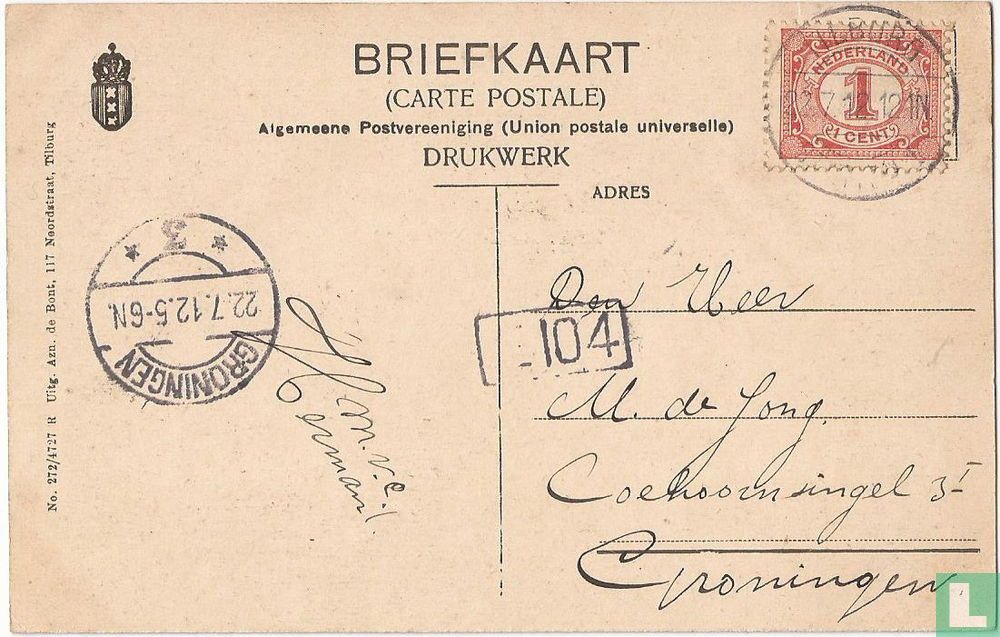 BRIEFKAART
(CARTE POSTALE)
Algemeene Postvereeniging (Union postale universelle)
DRUKWERK
ADRES
NEDERLAND
1
1 CENT
TILBURG
12.1N
No. 272/4727 R Uitg. Azn. de Bont, 117 Noordstraat, Tilburg
3
22.7.12.5-6N.
GRONINGEN
104
Den Heer
M. de Jong.
Coehoornsingel 3I
Groningen
L